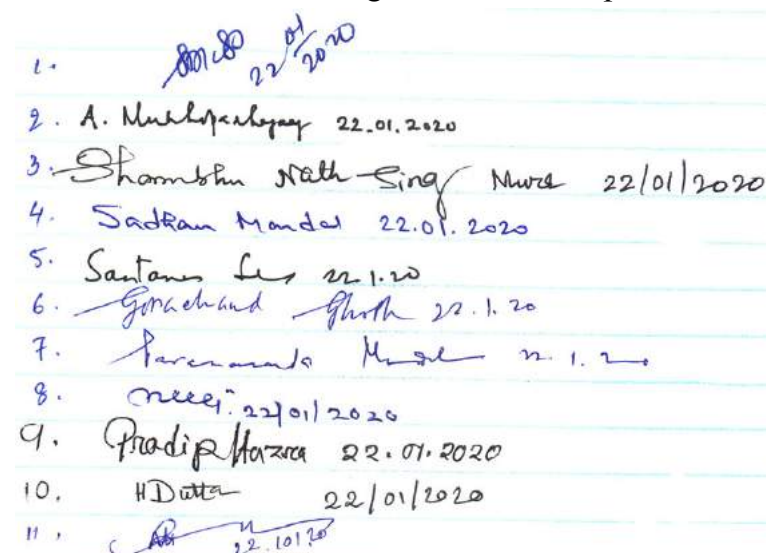 1. 22/01/2020
2. A. Mukhopadhyay 22.01.2020
3. Shambhu Nath Sing Mura 22/01/2020
4. Sadhan Mandal 22.01.2020
5. Santanu 22.1.20
6. Gorachand Ghosh 22.1.20
7. 22.1.20
8. 22/01/2020
9. Pradip Hazra 22.01.2020
10. H Dutta 22/01/2020
11.